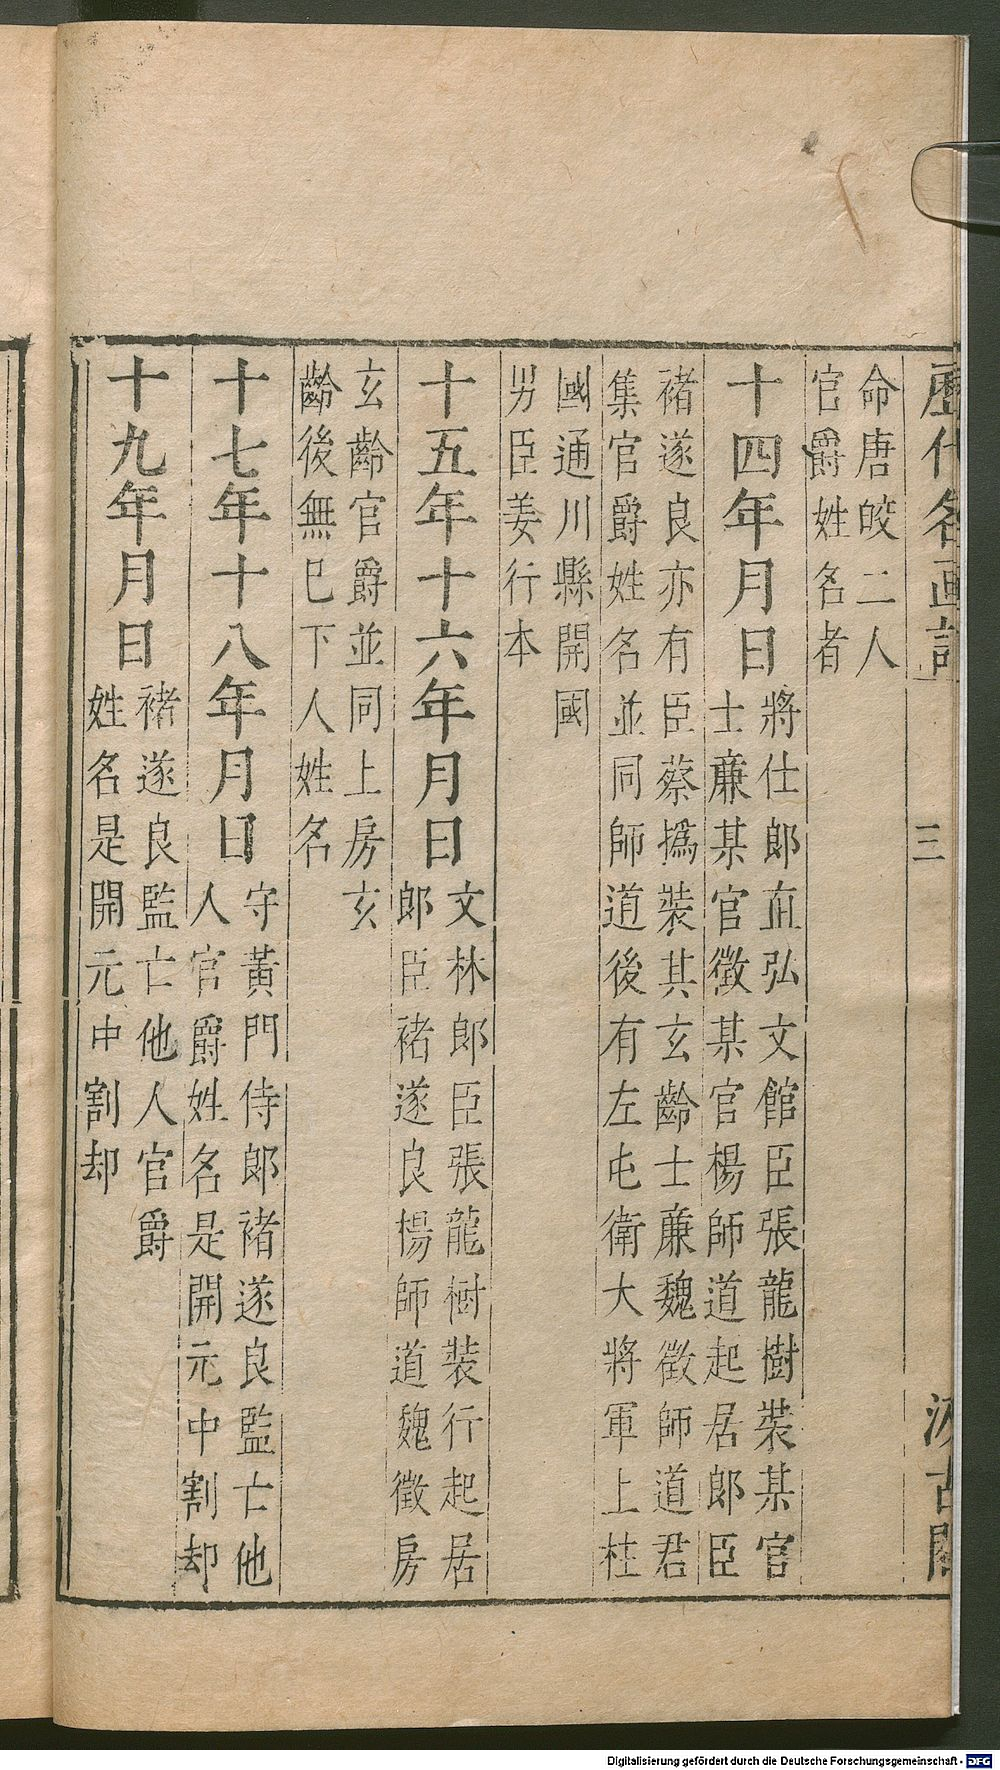 歷代名画記
三
汲古閣
命唐皎二人
官爵姓名者
十四年月日
將仕郎直弘文館臣張龍樹裝某官
士亷某官徵某官楊師道起居郎臣
褚遂良亦有臣蔡撝裝其玄齡士亷魏徵師道君
集官爵姓名並同師道後有左屯衛大將軍上柱
國通川縣開國
男臣姜行本
十五年十六年月日
文林郎臣張龍樹裝行起居
郎臣褚遂良楊師道魏徵房
玄齡官爵並同上房玄
齡後無巳下人姓名
十七年十八年月日
守黃門侍郎褚遂良監亡他
人官爵姓名是開元中割却
十九年月日
褚遂良監亡他人官爵
姓名是開元中割却
Digitalisierung gefördert durch die Deutsche Forschungsgemeinschaft - DFG